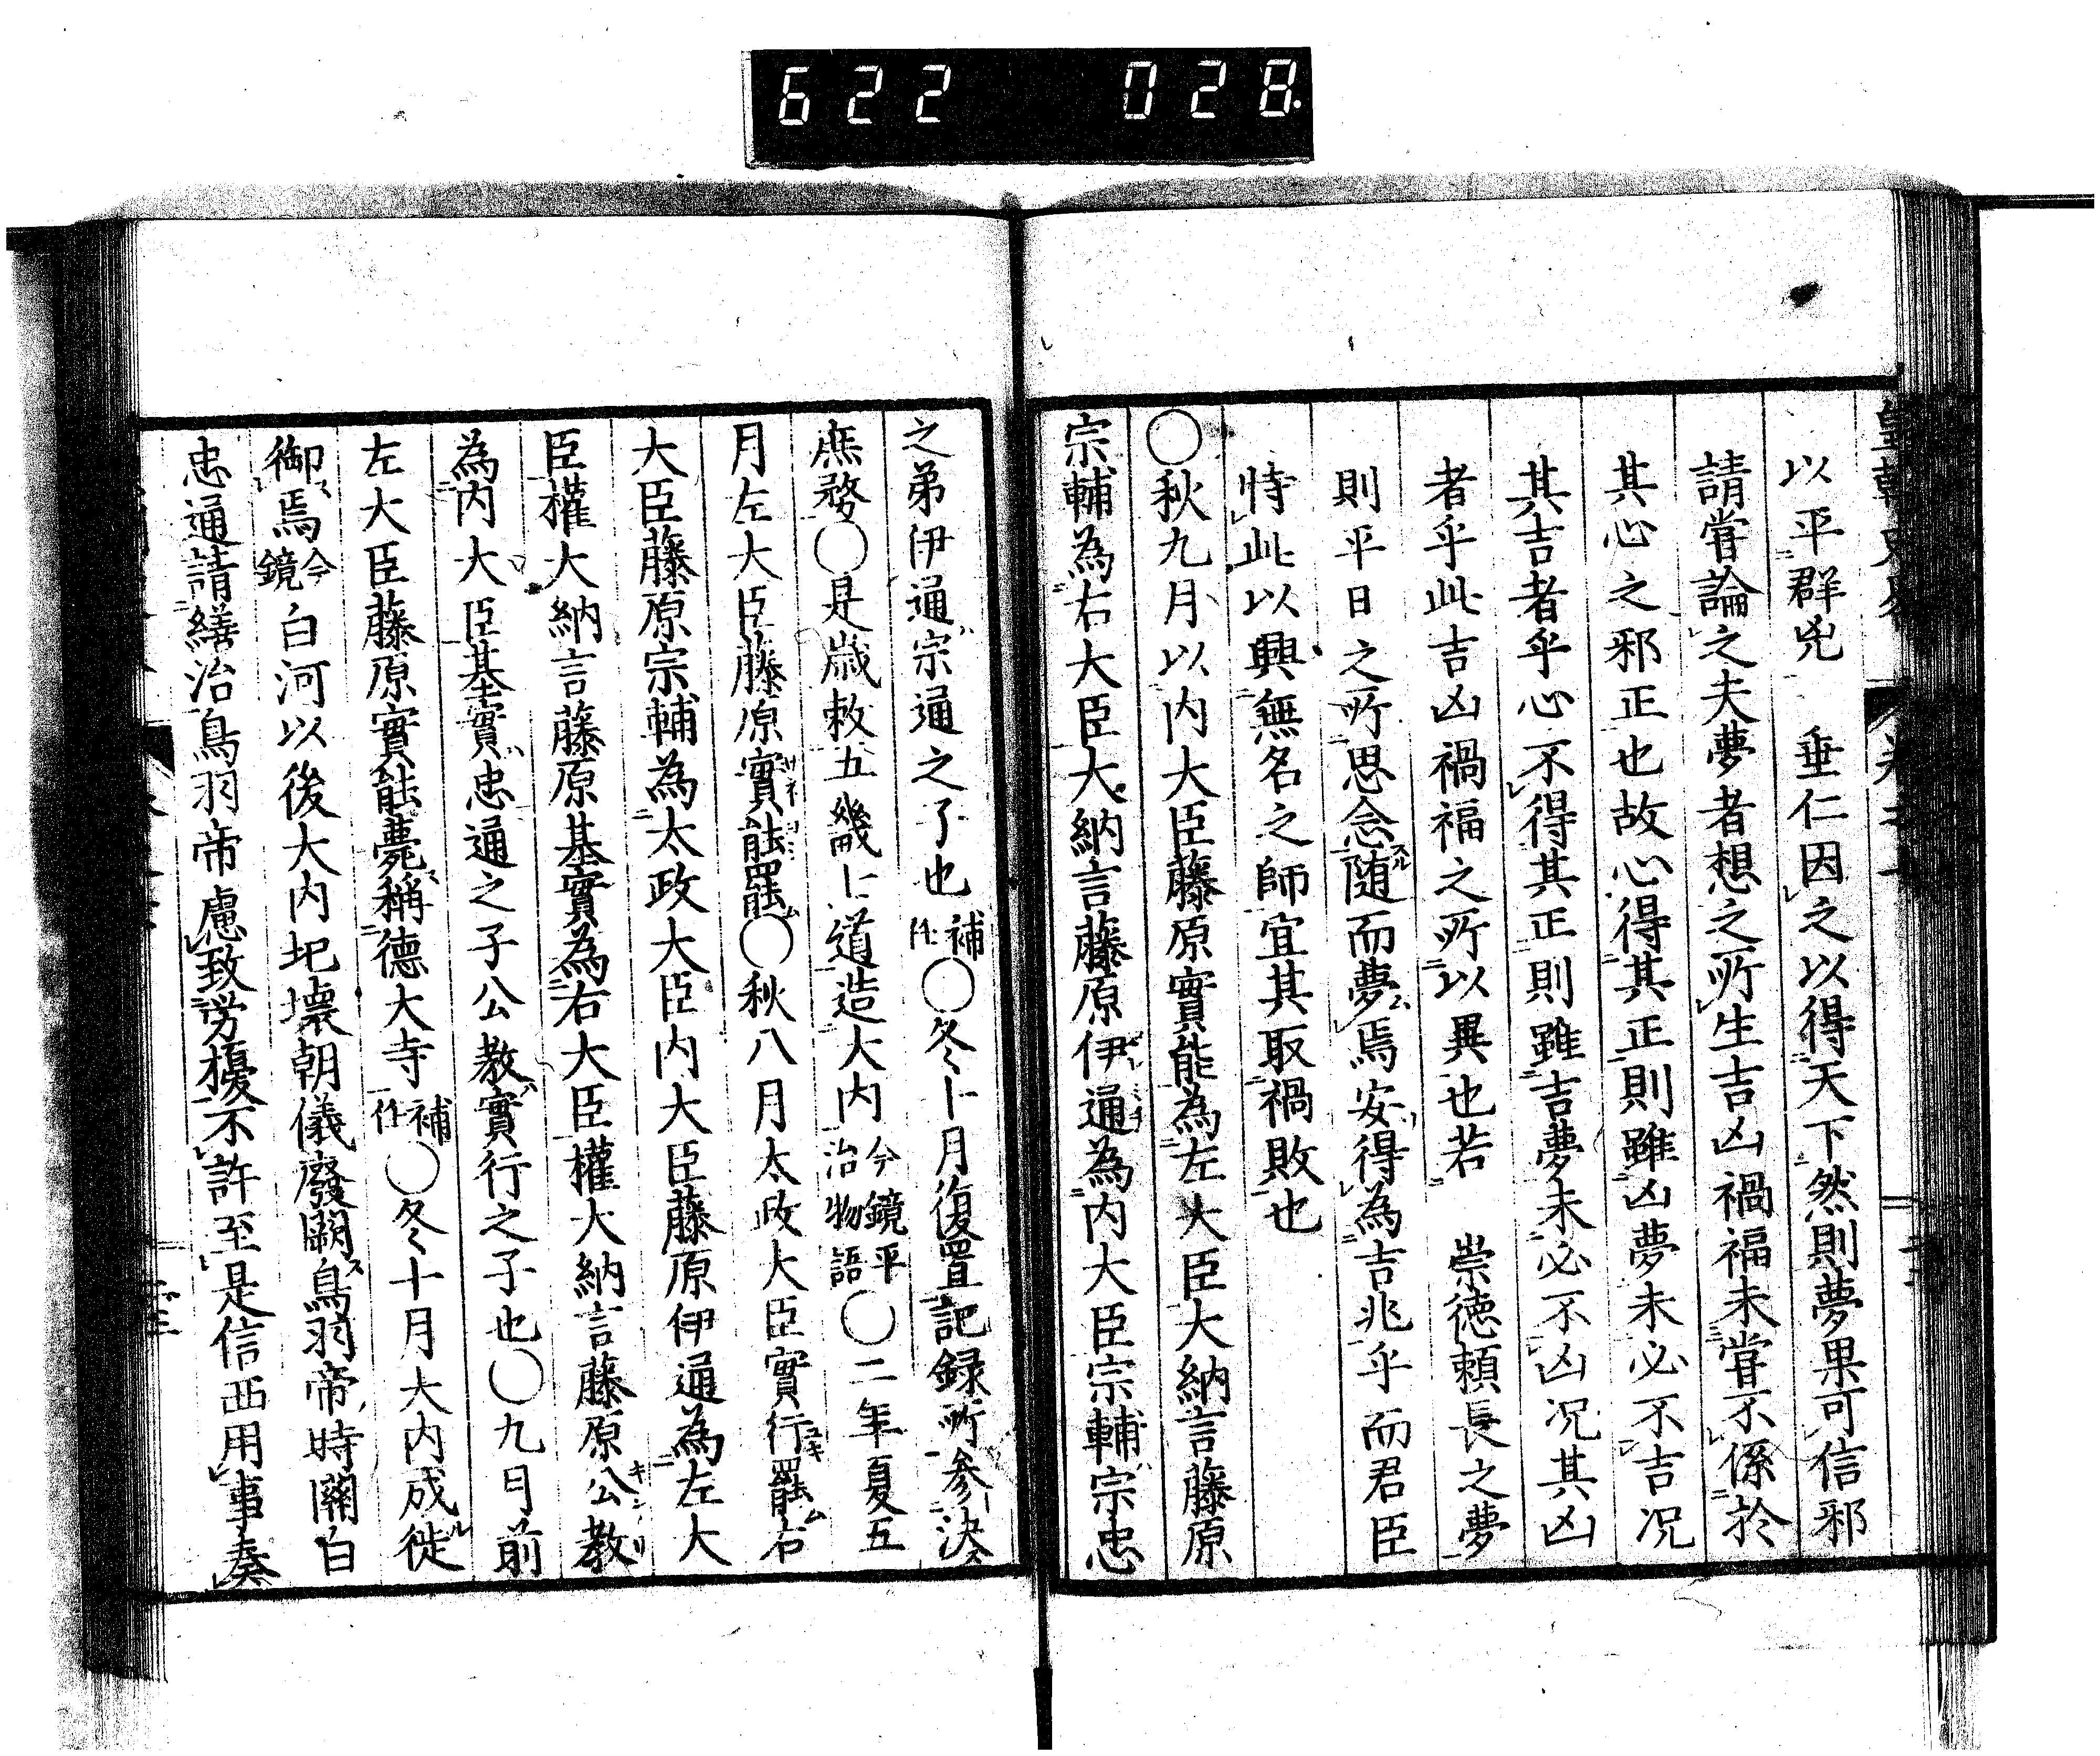 622 028
以平群兇　垂仁因之以得天下然則夢果可信邪
請嘗論之夫夢者想之所生吉凶禍福未嘗不係於
其心之邪正也故心得其正則雖凶夢未必不吉况
其吉者乎心不得其正則雖吉夢未必不凶况其凶
者乎此吉凶禍福之所以異也若　崇徳頼長之夢
則平日之所思念随而夢焉安得為吉兆乎而君臣
恃此以興無名之師宜其取禍敗也
〇秋九月以内大臣藤原實能為左大臣大納言藤原
宗輔為右大臣大納言藤原伊通為内大臣宗輔宗忠
之弟伊通宗通之子也補任〇冬十月復置記録所参決
庶務〇是歳敕五畿七道造大内今鏡平治物語〇二年夏五
月左大臣藤原實能罷〇秋八月太政大臣實行罷右
大臣藤原宗輔為太政大臣内大臣藤原伊通為左大
臣權大納言藤原基實為右大臣權大納言藤原公教
為内大臣基實忠通之子公教實行之子也〇九月前
左大臣藤原實能薨稱德大寺補任〇冬十月大内成徙
御焉今鏡白河以後大内圯壊朝儀廢闕鳥羽帝時關白
忠通請繕治鳥羽帝慮致労擾不許至是信西用事奏